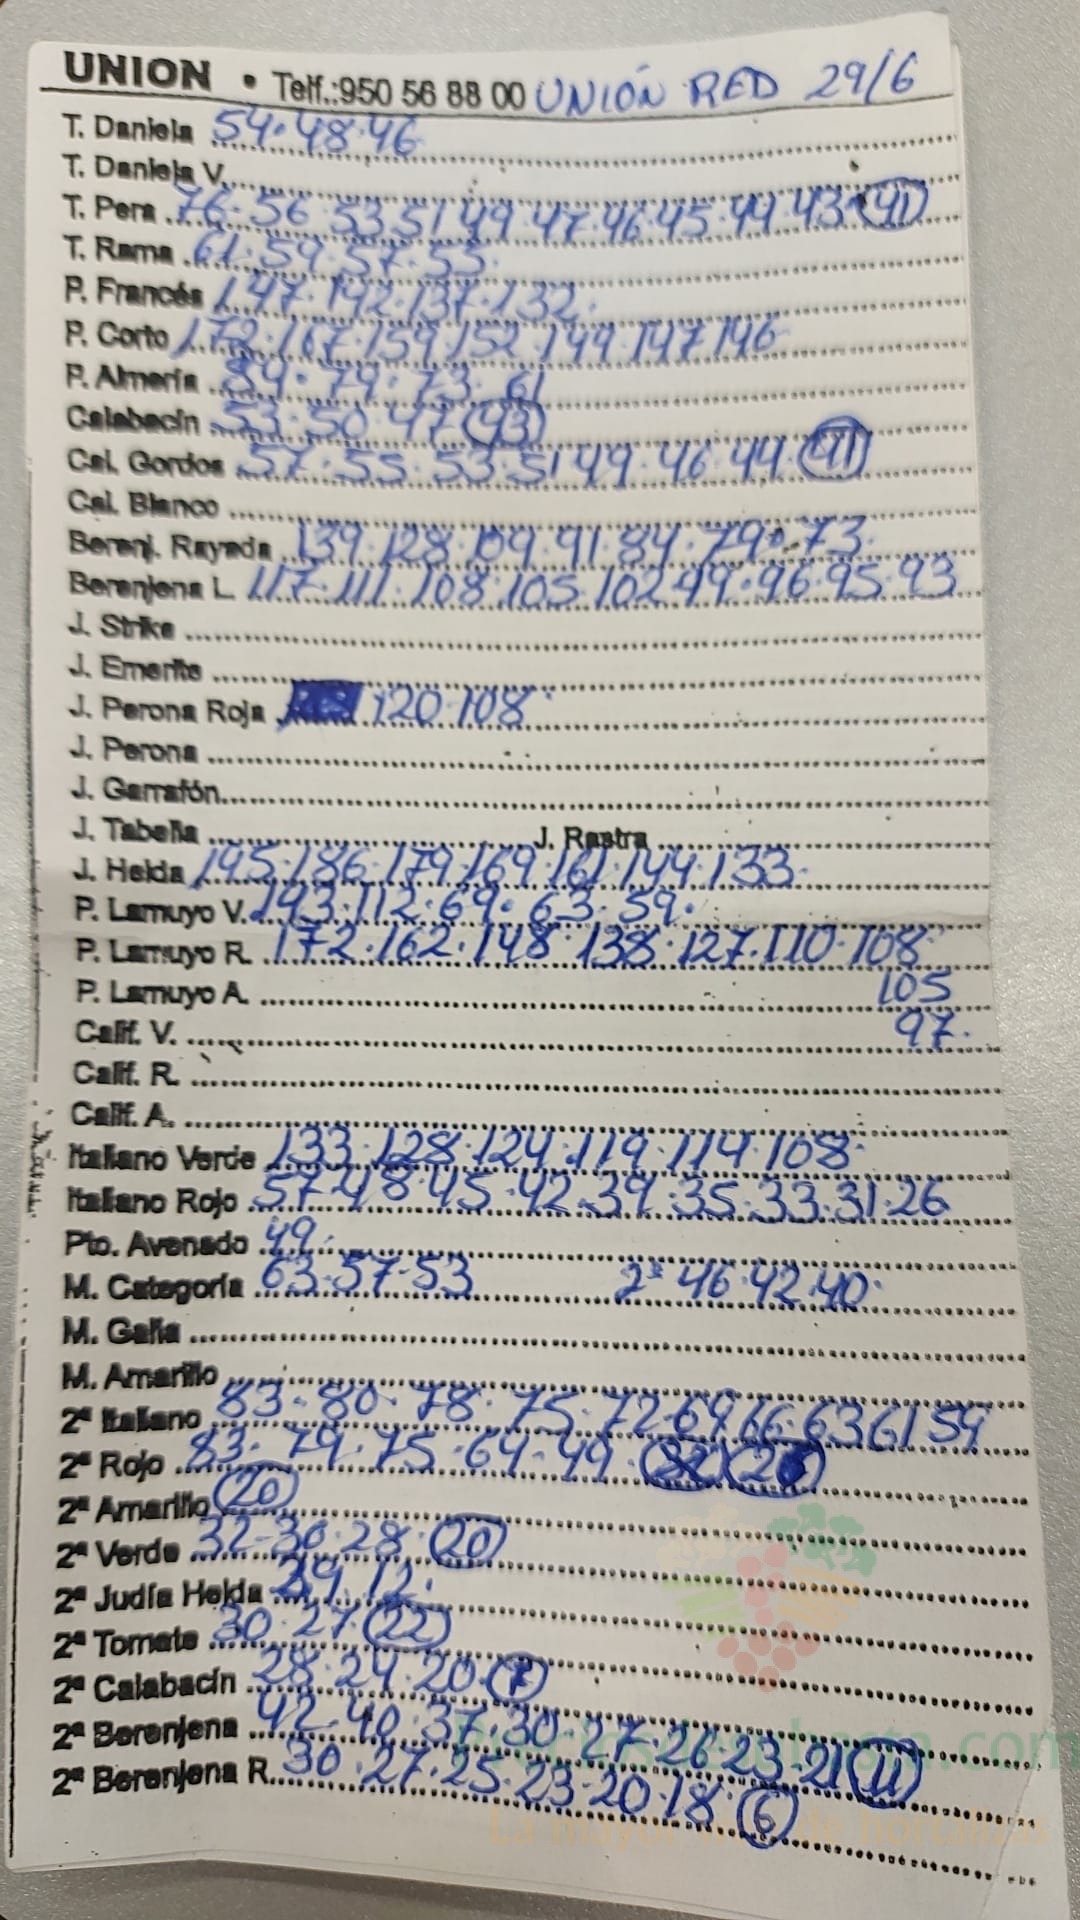 UNION • Telf.:950 56 88 00 UNIÓN RED 29/6
T. Daniela 54·48·46
T. Daniela V.
T. Pera 76·56·53·51·49·47·46·45·44·43·41
T. Rama 61·59·57·53·
P. Francés 147·142·137·132·
P. Corto 172·167·159·152·149·147·146
P. Almería 84·79·73·61
Calabacín 53·50·47·43
Cal. Gordos 57·55·53·51·49·46·44·41
Cal. Blanco
Berenj. Rayada 139·128·109·91·84·79·73·
Berenjena L. 117·111·108·105·102·99·96·95·93
J. Strike
J. Emerite
J. Perona Roja 120·108
J. Perona
J. Garrafón
J. Tabella J. Rastra
J. Helda 195·186·179·169·161·144·133·
P. Lamuyo V. 143·112·69·63·59·
P. Lamuyo R. 172·162·148·138·127·110·108
P. Lamuyo A. 105
Calif. V. 97·
Calif. R.
Calif. A.
Italiano Verde 133·128·124·119·114·108·
Italiano Rojo 57·48·45·42·39·35·33·31·26
Pto. Avenado 49·
M. Categoría 63·57·53 2ª 46·42·40·
M. Galia
M. Amarillo
2ª Italiano 83·80·78·75·72·69·66·63·61·59
2ª Rojo 83·79·75·64·49·
2ª Amarillo 20
2ª Verde 32·30·28·20
2ª Judía Helda 12·
2ª Tomate 30·27·22
2ª Calabacín 28·24·20·7
2ª Berenjena 42·40·37·30·27·26·23·21·11
2ª Berenjena R. 30·27·25·23·20·18·6